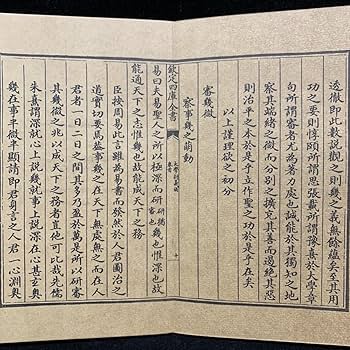 透徹即此數説觀之則幾之義無餘蘊矣至其用
功之要則惇頤所謂思張載所謂豫熹於大學章
句所謂審者尤為著力處也誠能於其獨知之地
察其端緒之微而分別之擴充其善而遏絶其惡
則治平之本於是乎立作聖之功於是乎在矣
以上謹理欲之初分
審幾微
察事幾之萌動
欽定四庫全書
大學衍義補
十
易曰夫易聖人之所以極深而研研猶審也幾也惟深也故
能通天下之志惟幾也故能成天下之務
臣按周易此言雖為易書而發然於人君圖治之
道實切要焉蓋事幾之在天下無處無之而在人
君者一日二日之間其多乃至於萬是所以研審
其幾微之兆以成天下之務者豈他可比哉先儒
朱熹謂深就心上説幾就事上説深在心甚玄奥
幾在事半微半顯請即君身言之人君一心淵奥